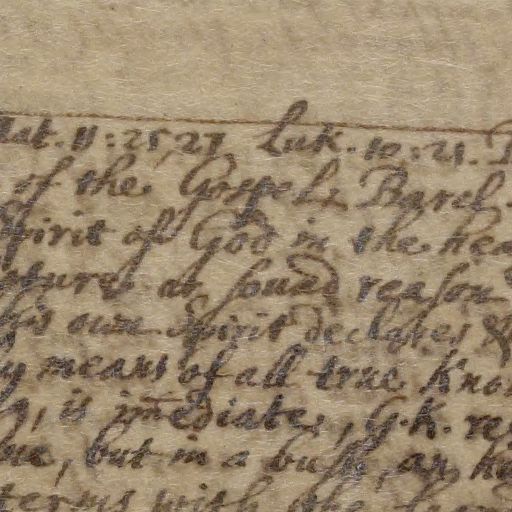 Mat. 11:25,27 Luk. 10:21.
of the Gospel, Barcl.
Spirit of God in the hea
as sound reason
his own Spirit declares &
by means of all true Kno
is im̄ediate, G.K. re
but in a bush, as h
terms with the